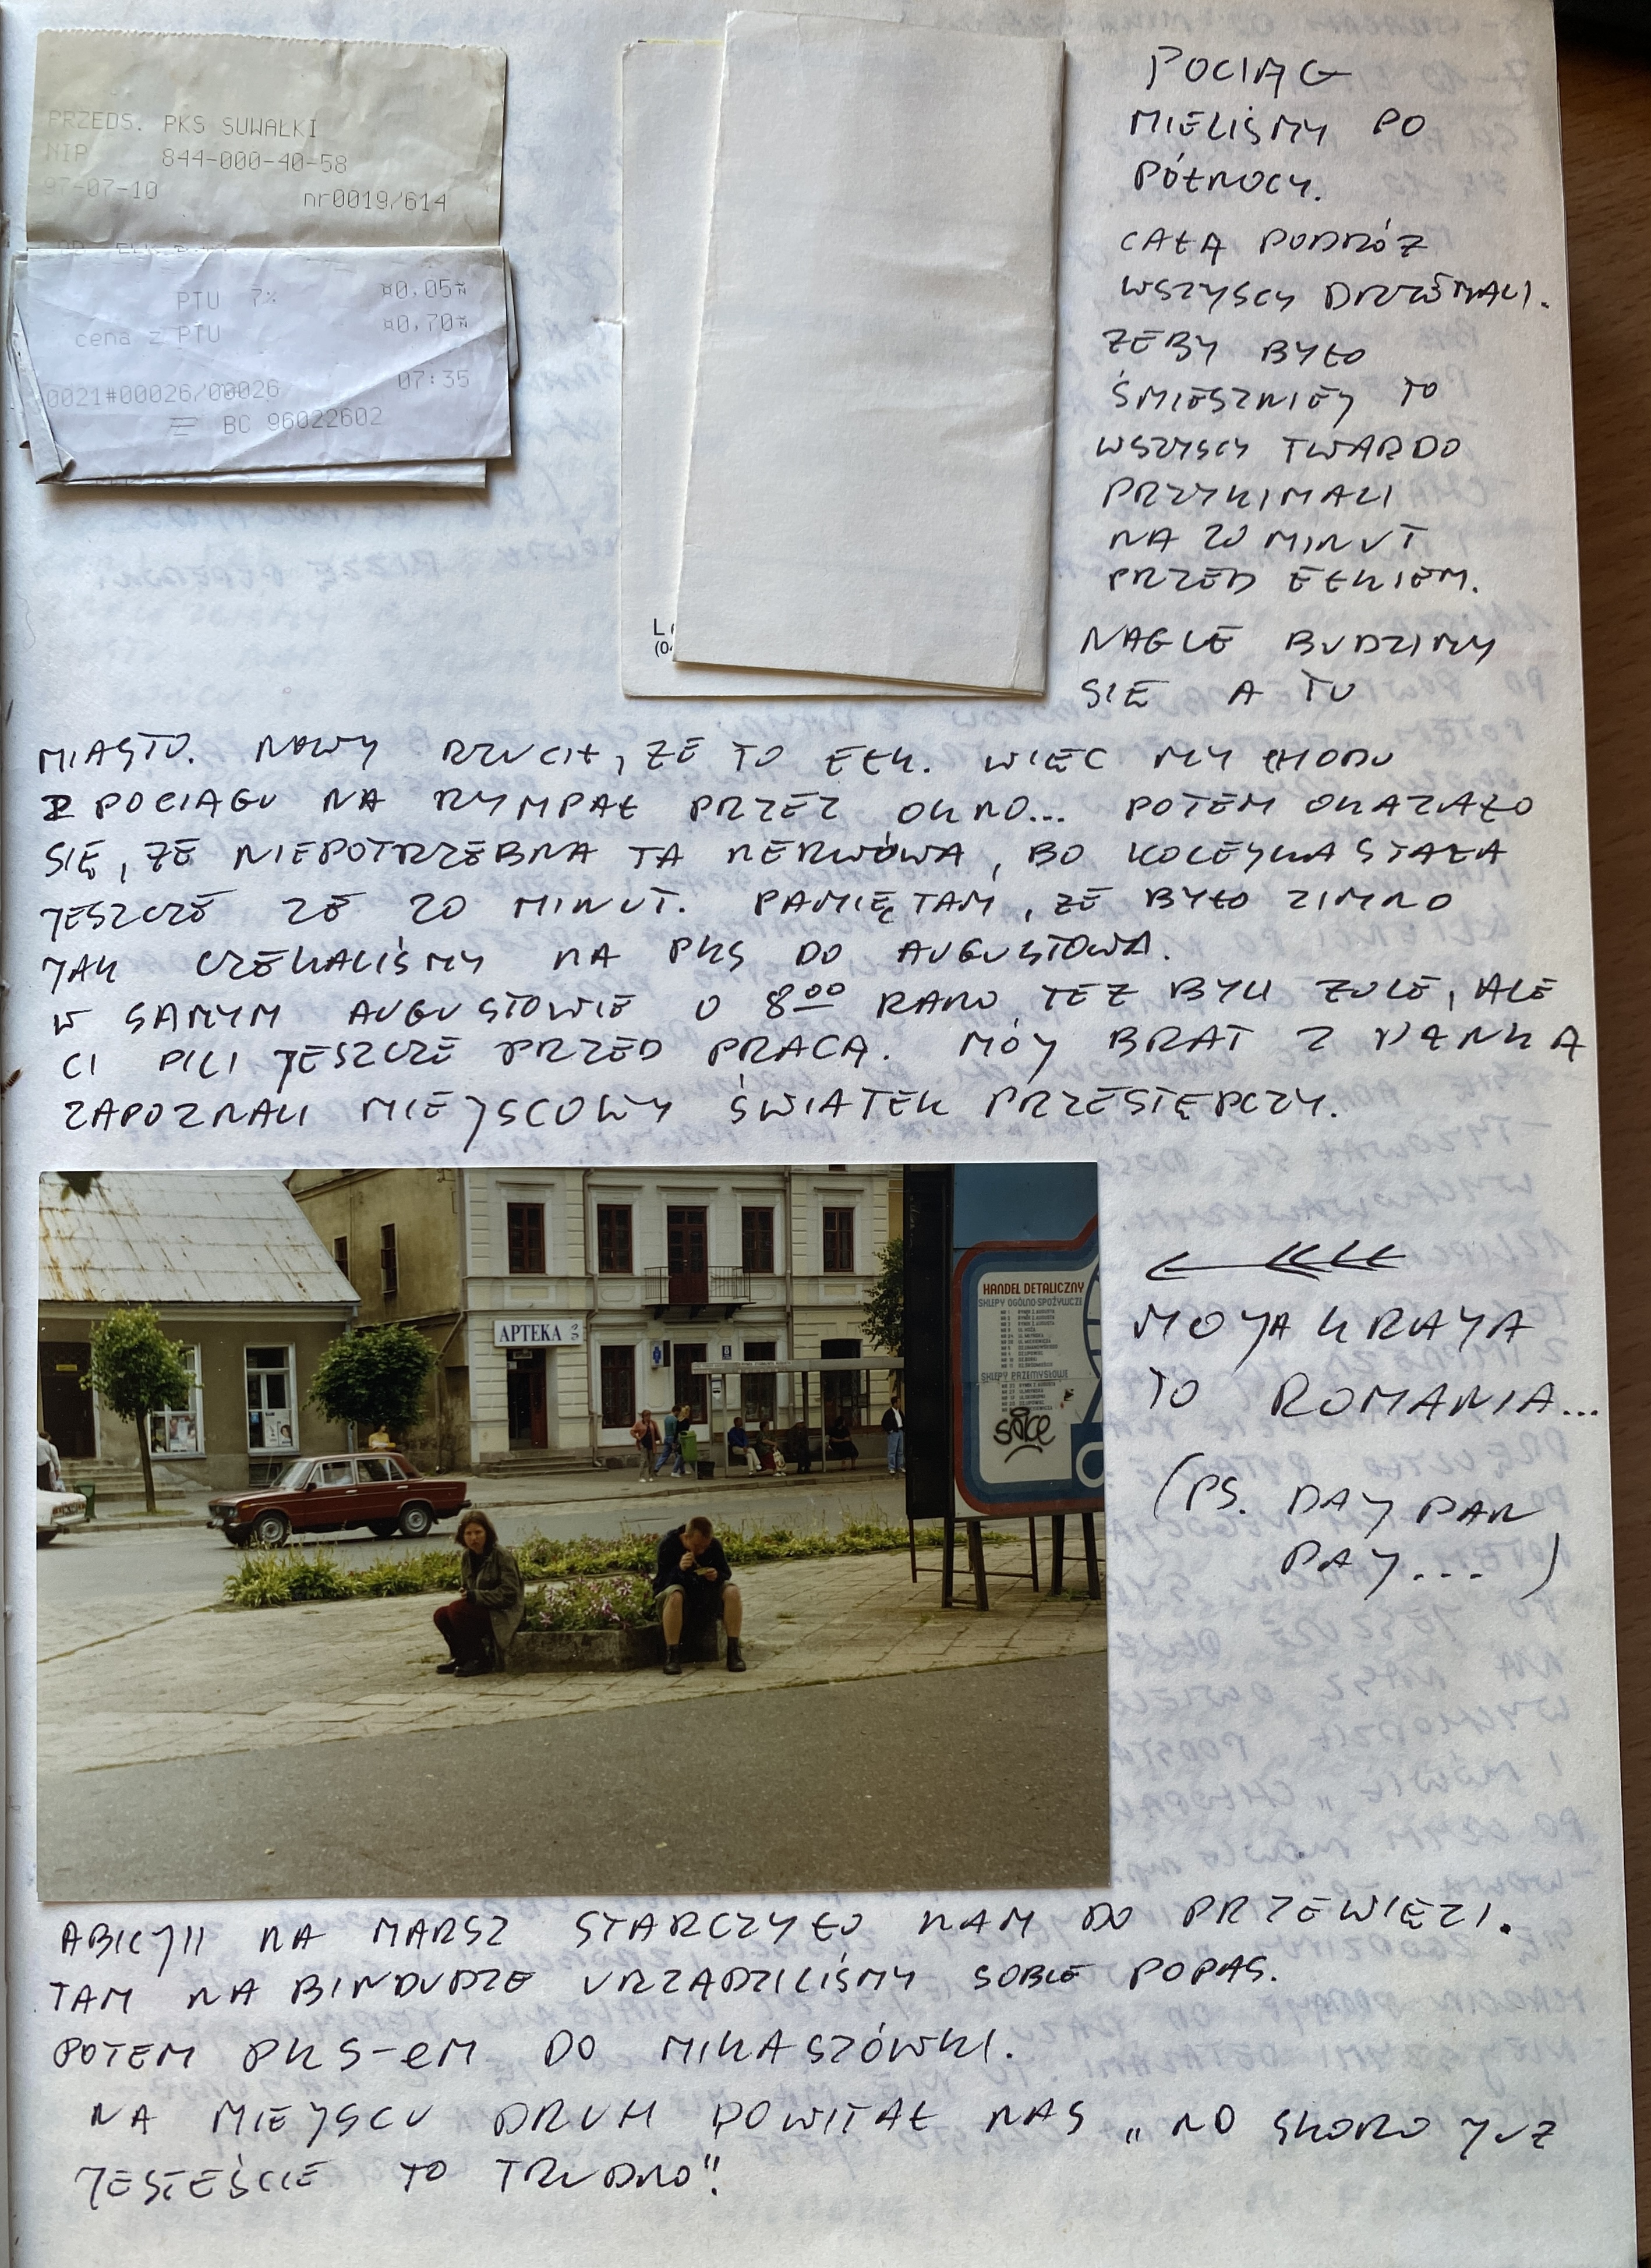 PRZEDS. PKS SUWAŁKI
NIP 844-000-40-58
97-07-10 nr0019/614
PTU 7% ¤0,05¤
cena z PTU ¤0,70¤
07:35
0021#00026/00026
BC 96022602
POCIĄG
MIELIŚMY PO
PÓŁNOCY.
CAŁĄ PODRÓŻ
WSZYSCY DRZEMALI.
ŻEBY BYŁO
ŚMIESZNIEJ TO
WSZYSCY TWARDO
PRZYKIMALI
NA 20 MINUT
PRZED EŁKIEM.
NAGLE BUDZIMY
SIĘ A TU
MIASTO. NOWY RZUCIŁ, ŻE TO EŁK. WIĘC MY CHODU
Z POCIĄGU NA RYMPAŁ PRZEZ OKNO... POTEM OKAZAŁO
SIĘ, ŻE NIEPOTRZEBNA TA NERWÓWA, BO KOLEJKA STAŁA
JESZCZE ZE 20 MINUT. PAMIĘTAM, ŻE BYŁO ZIMNO
JAK CZEKALIŚMY NA PKS DO AUGUSTOWA.
W SAMYM AUGUSTOWIE O 8⁰⁰ RANO TEŻ BYLI ŻULE, ALE
CI PILI JESZCZE PRZED PRACĄ. MÓJ BRAT Z
ZAPOZNALI MIEJSCOWY ŚWIATEK PRZESTĘPCZY.
APTEKA
HANDEL DETALICZNY
SKLEPY OGÓLNO-SPOŻYWCZE
SKLEPY PRZEMYSŁOWE
MOJA KRAJA
TO ROMANIA...
(PS. DAJ PAN
PAJ...)
ABICJII NA MARSZ STARCZYŁO NAM DO PRZEWIĘZI.
TAM NA BINDUDZE URZĄDZILIŚMY SOBIE POPAS.
POTEM PKS-eM DO MIKASZÓWKI.
NA MIEJSCU DRUH POWITAŁ NAS „NO SKORO JUŻ
JESTEŚCIE TO TRUDNO"!